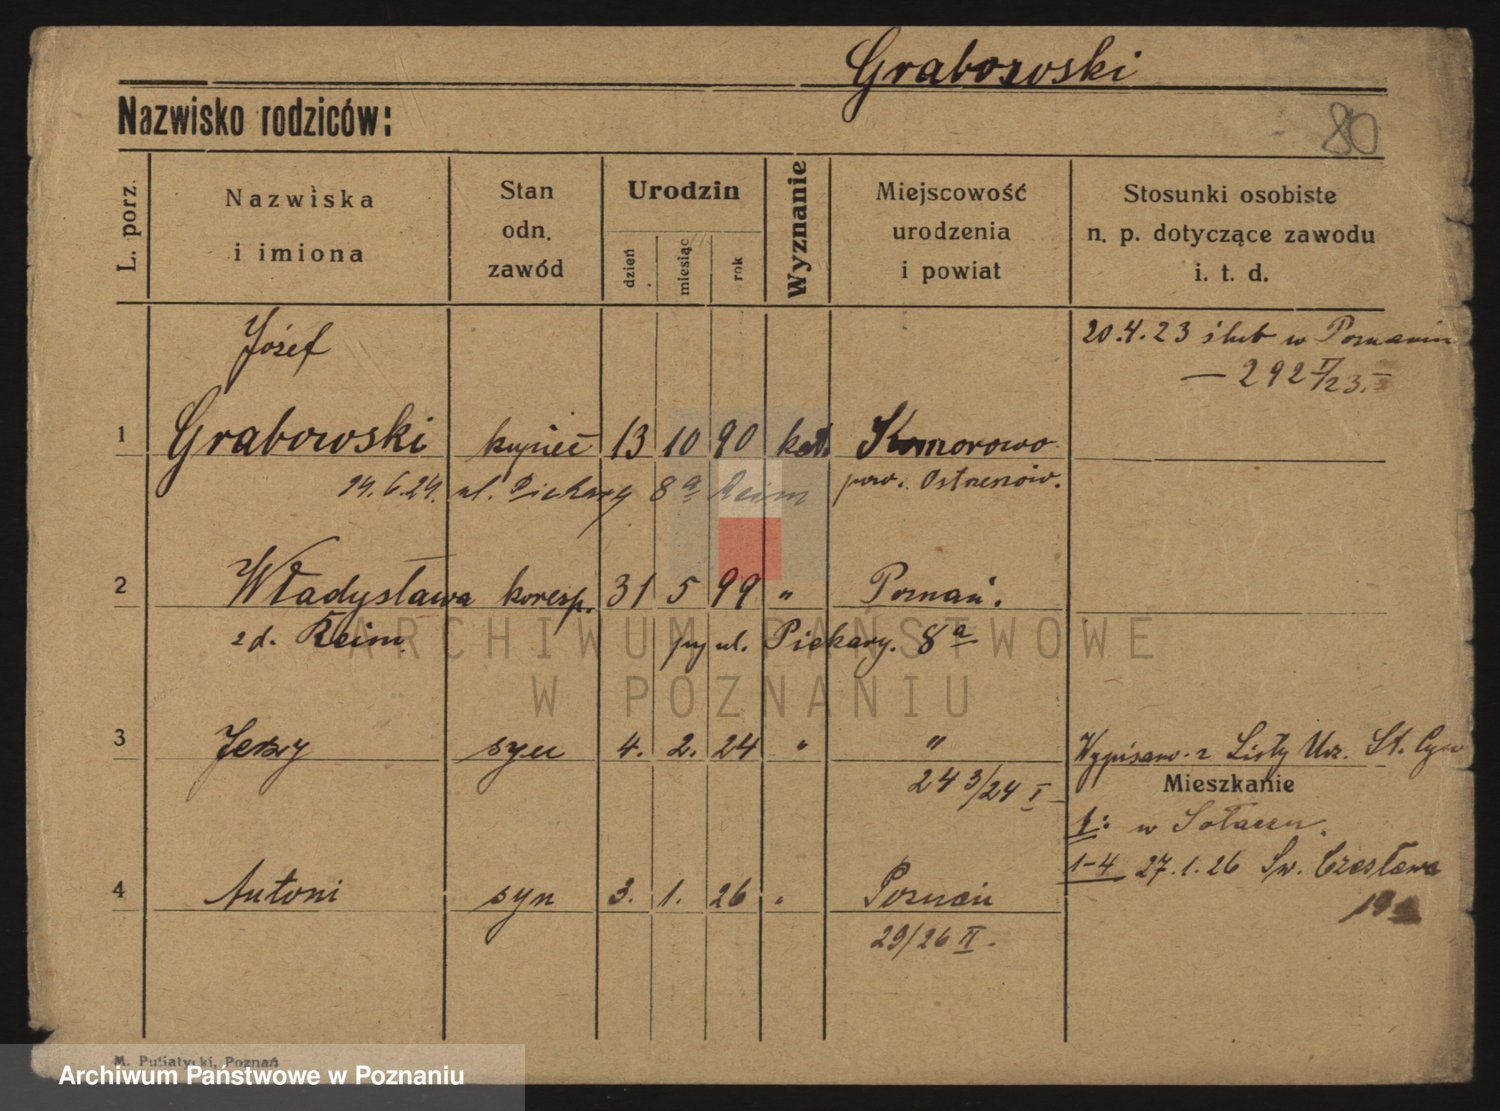 Grabowski
80
Nazwisko rodziców:
L. porz.
Nazwiska
i imiona
Stan
odn.
zawód
Urodzin
dzień
miesiąc
rok
Wyznanie
Miejscowość
urodzenia
i powiat
Stosunki osobiste
n. p. dotyczące zawodu
i. t. d.
Józef
20.4.23 ślub w Poznaniu
— 292 II/23. —
1 Grabowski kupiec 13 10 90 kat. Komorowo
14.6.24. ul. Piekary 8a Reim pow. Ostrzeszów.
2 Władysława koresp. 31 5 99 " Poznań.
zd. Reim ul. Piekary. 8a
ARCHIWUM PAŃSTWOWE
W POZNANIU
3 Jerzy syn 4. 2. 24 " " Wypisano z Listy Urz. St. Cyw
24 3/24 I
Mieszkanie
1: w Sołaczu.
1-4 27.1.26 Św. Czesława
4 Antoni syn 3. 1. 26 " Poznań
29/26 II.
M. Putiatycki, Poznań
Archiwum Państwowe w Poznaniu